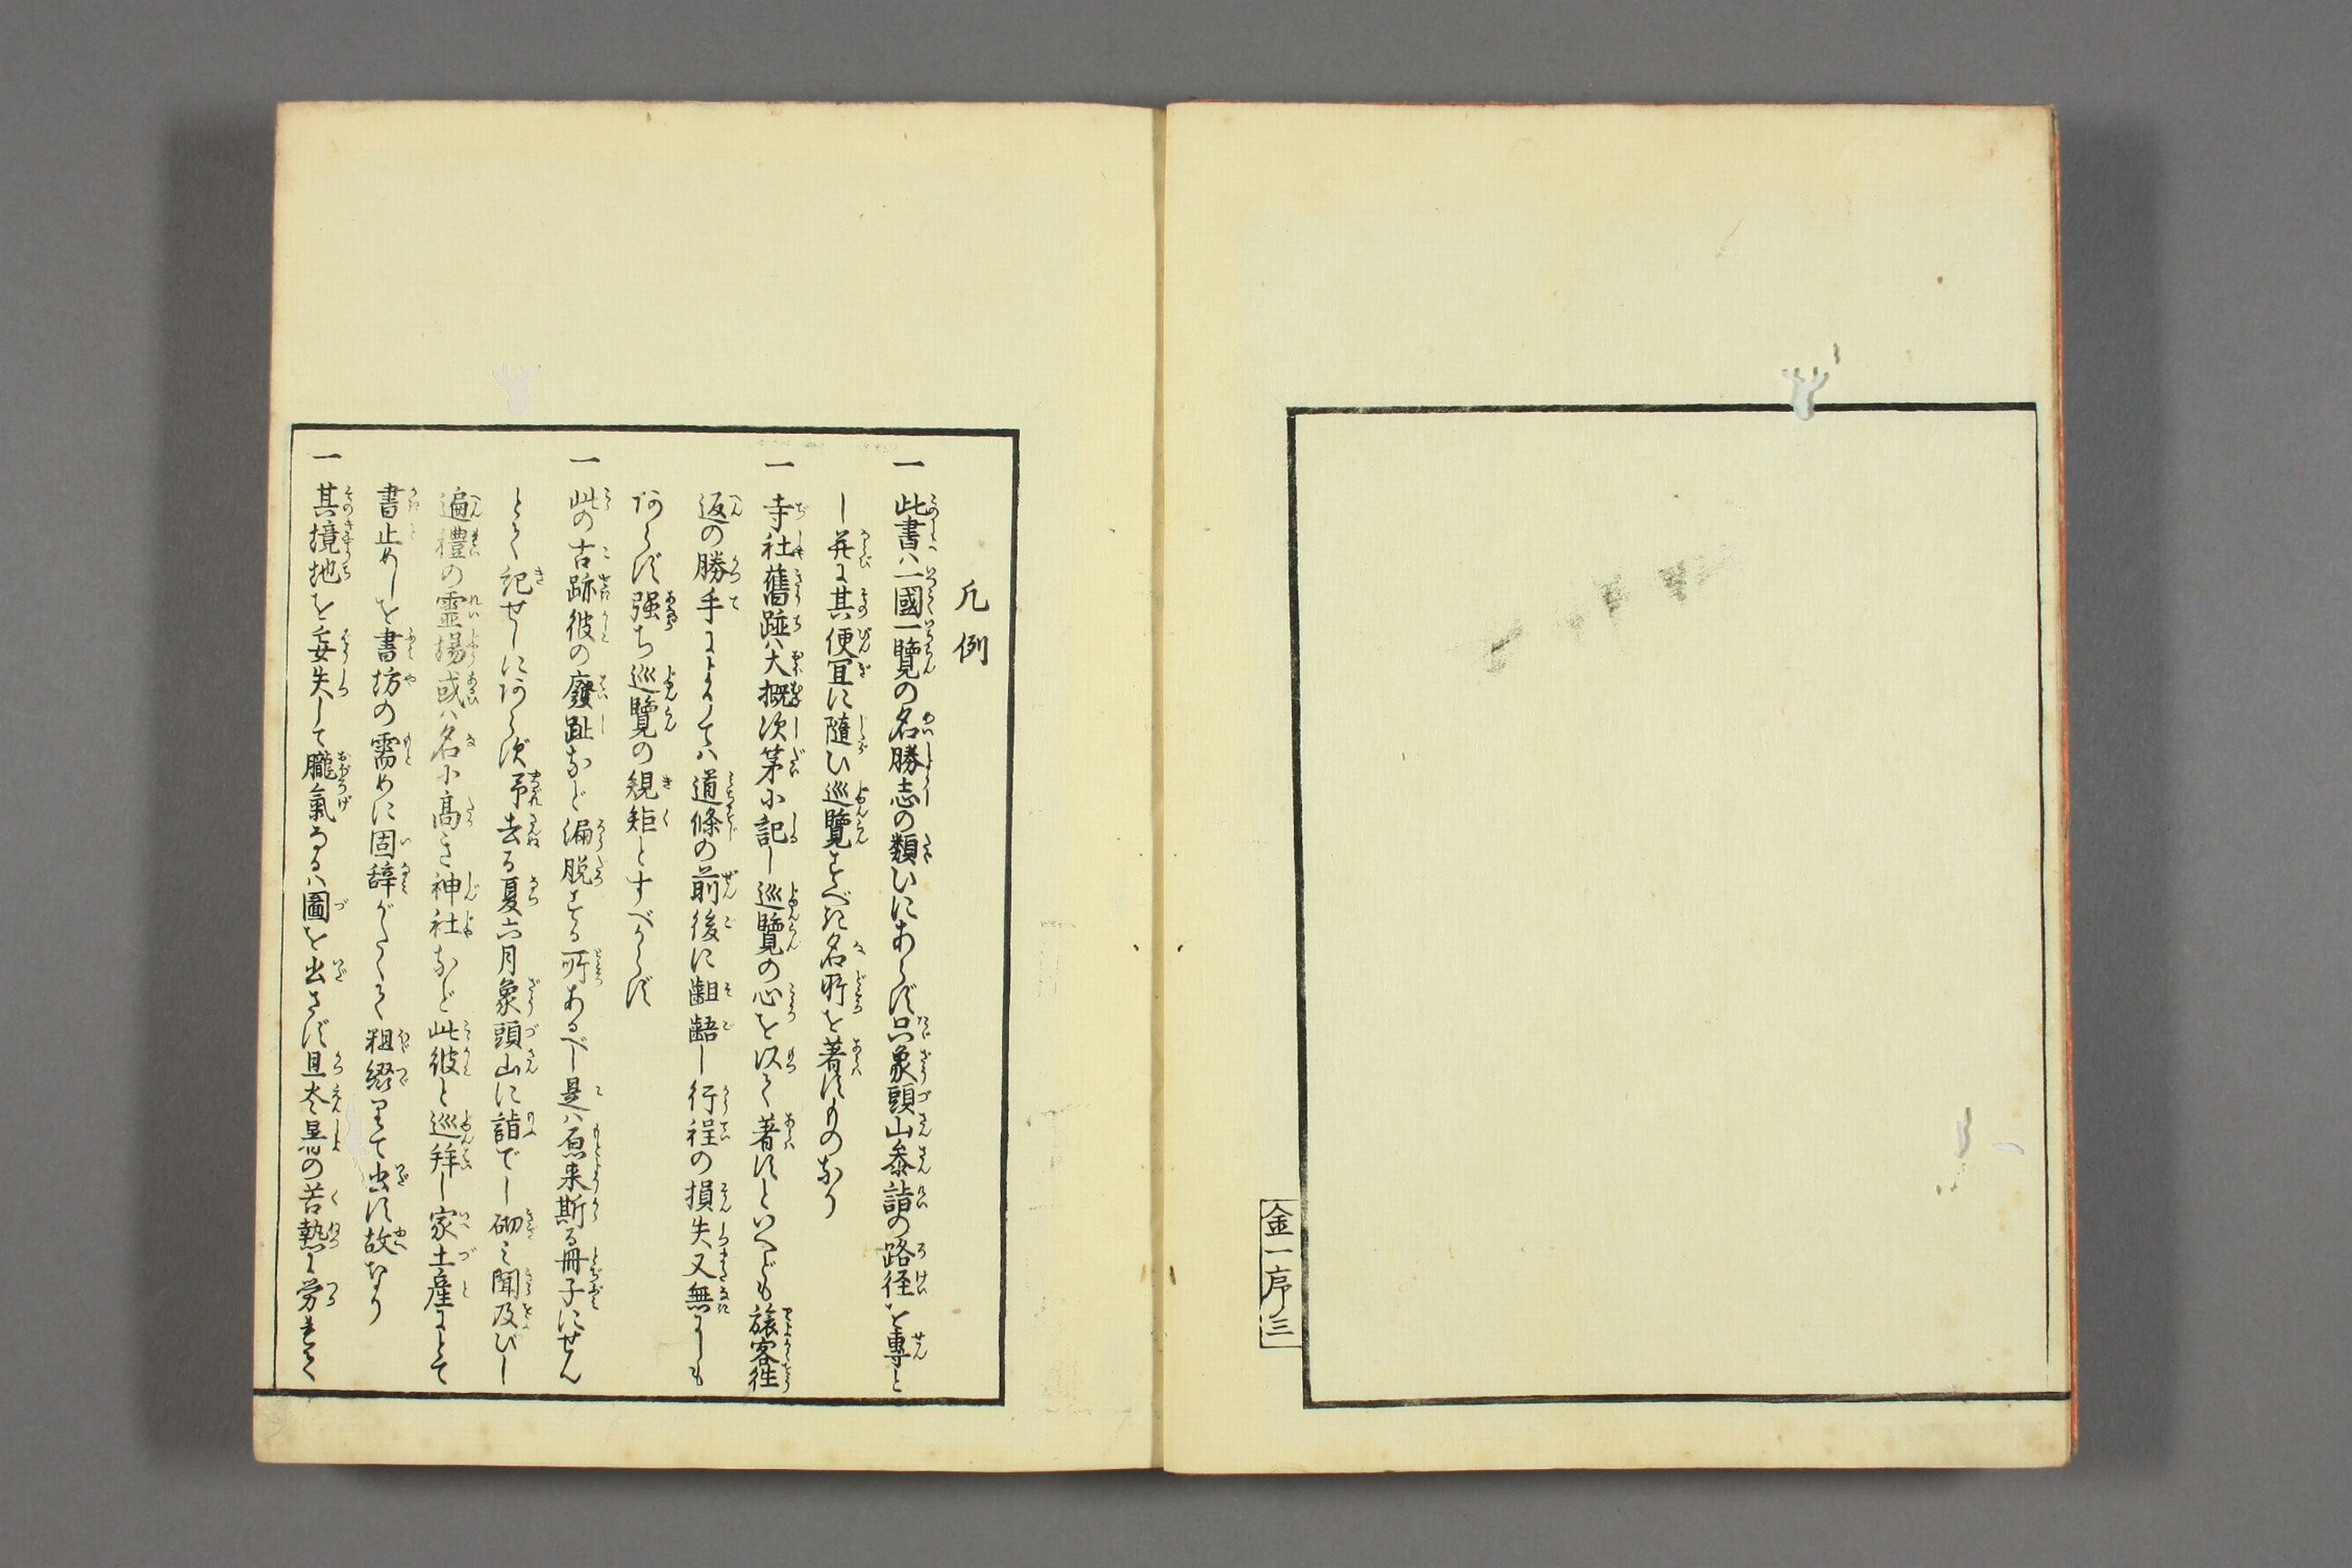 金一序三
凡例
一 此書ハ一國一覽の名勝志の類ひにあらず只象頭山参詣の路径を專と
し并に其便宜に隨ひ巡覽すべき名所を著すものなり
一 寺社舊跡ハ大概次第に記し巡覽の心を以て著すといへども旅客徃
返の勝手によりてハ道條の前後に齟齬し行程の損失又無にしも
あらず强ち巡覽の規矩とすべからず
一 此の古跡彼の廢趾など漏脱する所あるべし是ハ原来斯る冊子にせん
とて記せしにあらず予去る夏六月象頭山に詣でし砌ミ聞及びし
遍禮の靈場或ハ名に高き神社など此彼と巡拜し家土産にとて
書止めしを書坊の需めに固辞がたくて粗綴りて出す故なり
一 其境地を妄失して朧氣なるハ圖を出さず且炎暑の苦熱に労れて